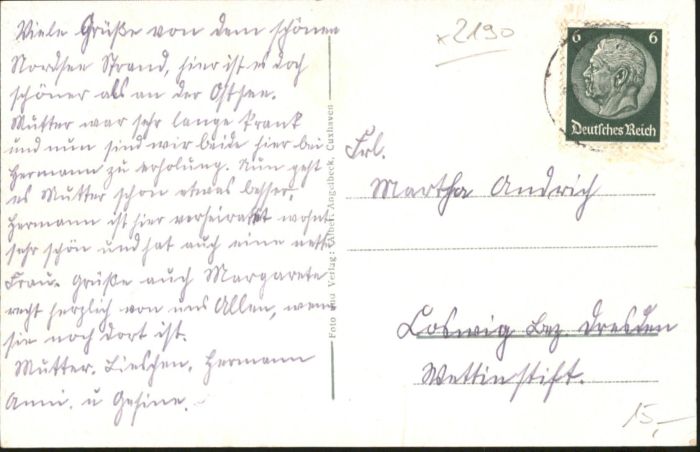 Viele Grüße von dem schönen
Nordsee Strand, hier ist es doch
schöner als an der Ostsee.
Mutter war sehr lange krank
und nun sind wir beide hier bei
Hermann zu erholung. Nun geht
es Mutter schon etwas besser,
Hermann ist hier verheiratet wohnt
sehr schön und hat auch eine nette
Frau. Grüße auch Margarete
recht herzlich von uns Allen, wenn
sie noch dort ist.
Mutter. Lieschen. Hermann
Anni. u Gesine.
Foto und Verlag: Alber. Angelbeck, Cuxhaven
x2190
6 6
Deutsches Reich
Frl.
Martha Andrich
Coswig Bez. Dresden
Wettinstift.
15,-